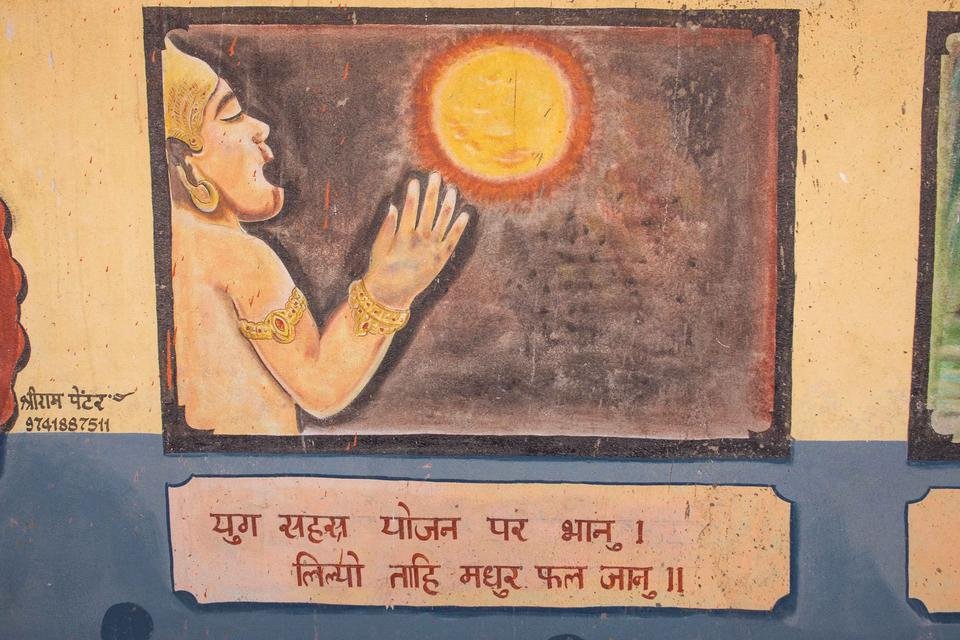 श्रीराम पेंटर
9741887511
युग सहस्र योजन पर भानु ।
लिल्यो ताहि मधुर फल जानु ॥